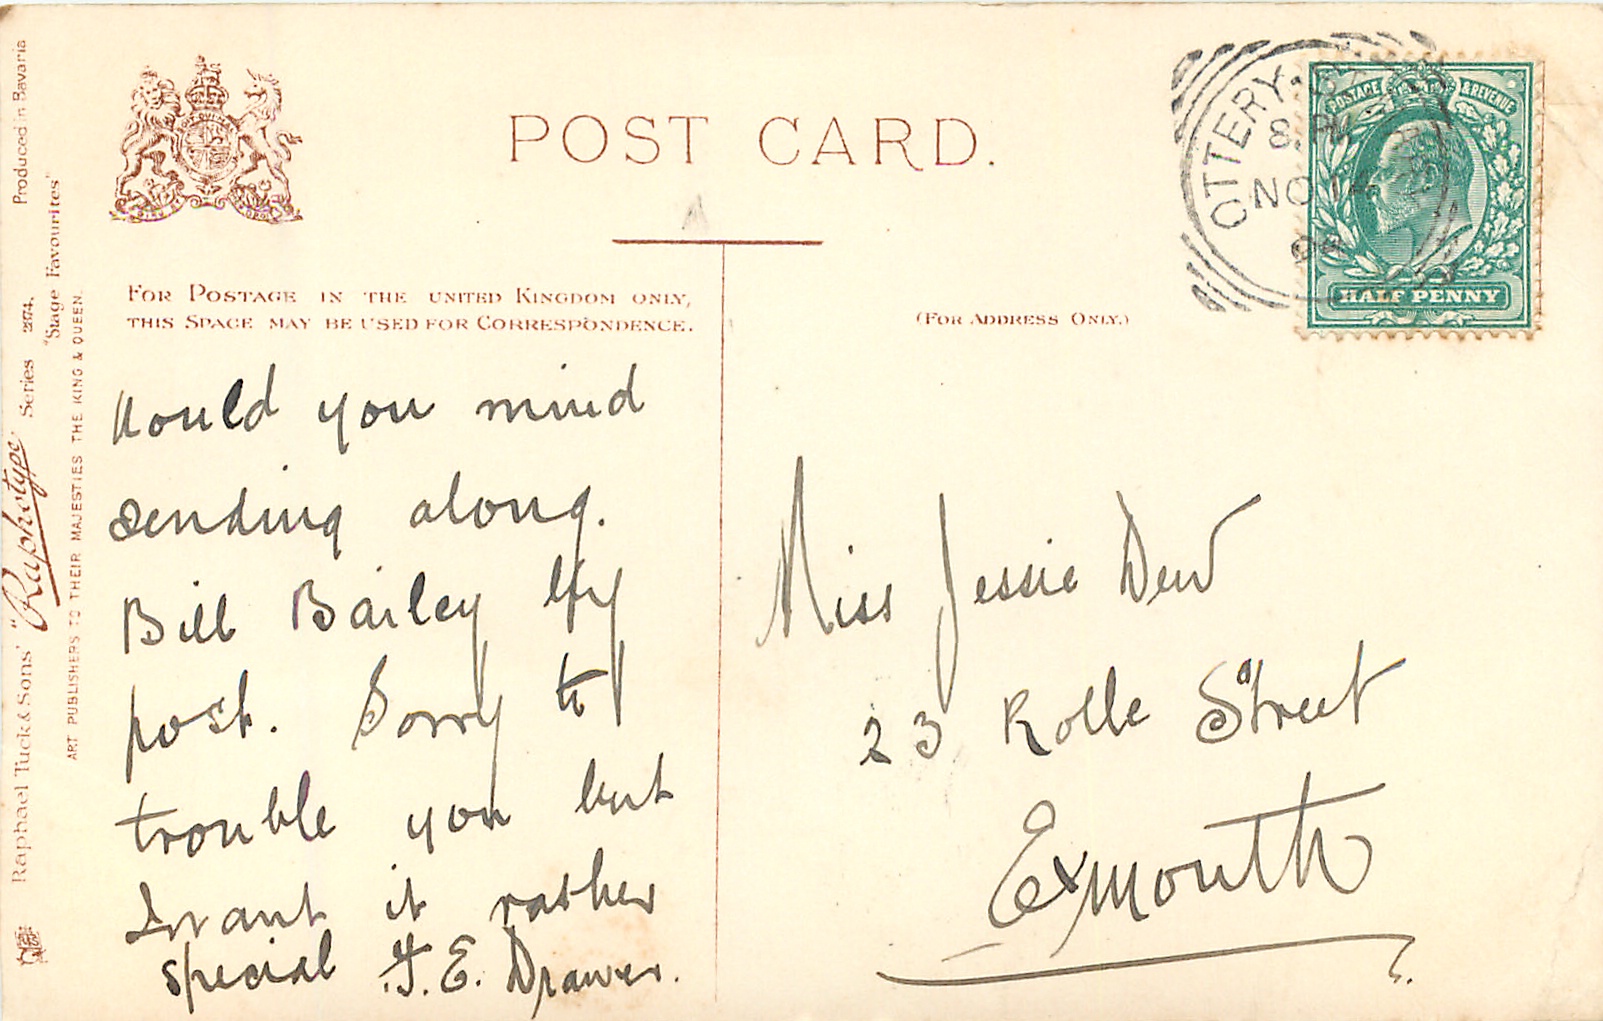 POST CARD.
FOR POSTAGE IN THE UNITED KINGDOM ONLY,
THIS SPACE MAY BE USED FOR CORRESPONDENCE.
(FOR ADDRESS ONLY.)
Would you mind
sending along.
Bill Bailey by
post. Sorry to
trouble you but
I want it rather
special F. E. Drawer.
Miss Jessie Dew
23 Rolle Street
Exmouth
OTTERY
8 PM
NO 14
POSTAGE & REVENUE
HALF PENNY
Raphael Tuck & Sons' "Raphotype" Series 2374.
"Stage Favourites"
Produced in Bavaria
ART PUBLISHERS TO THEIR MAJESTIES THE KING & QUEEN.